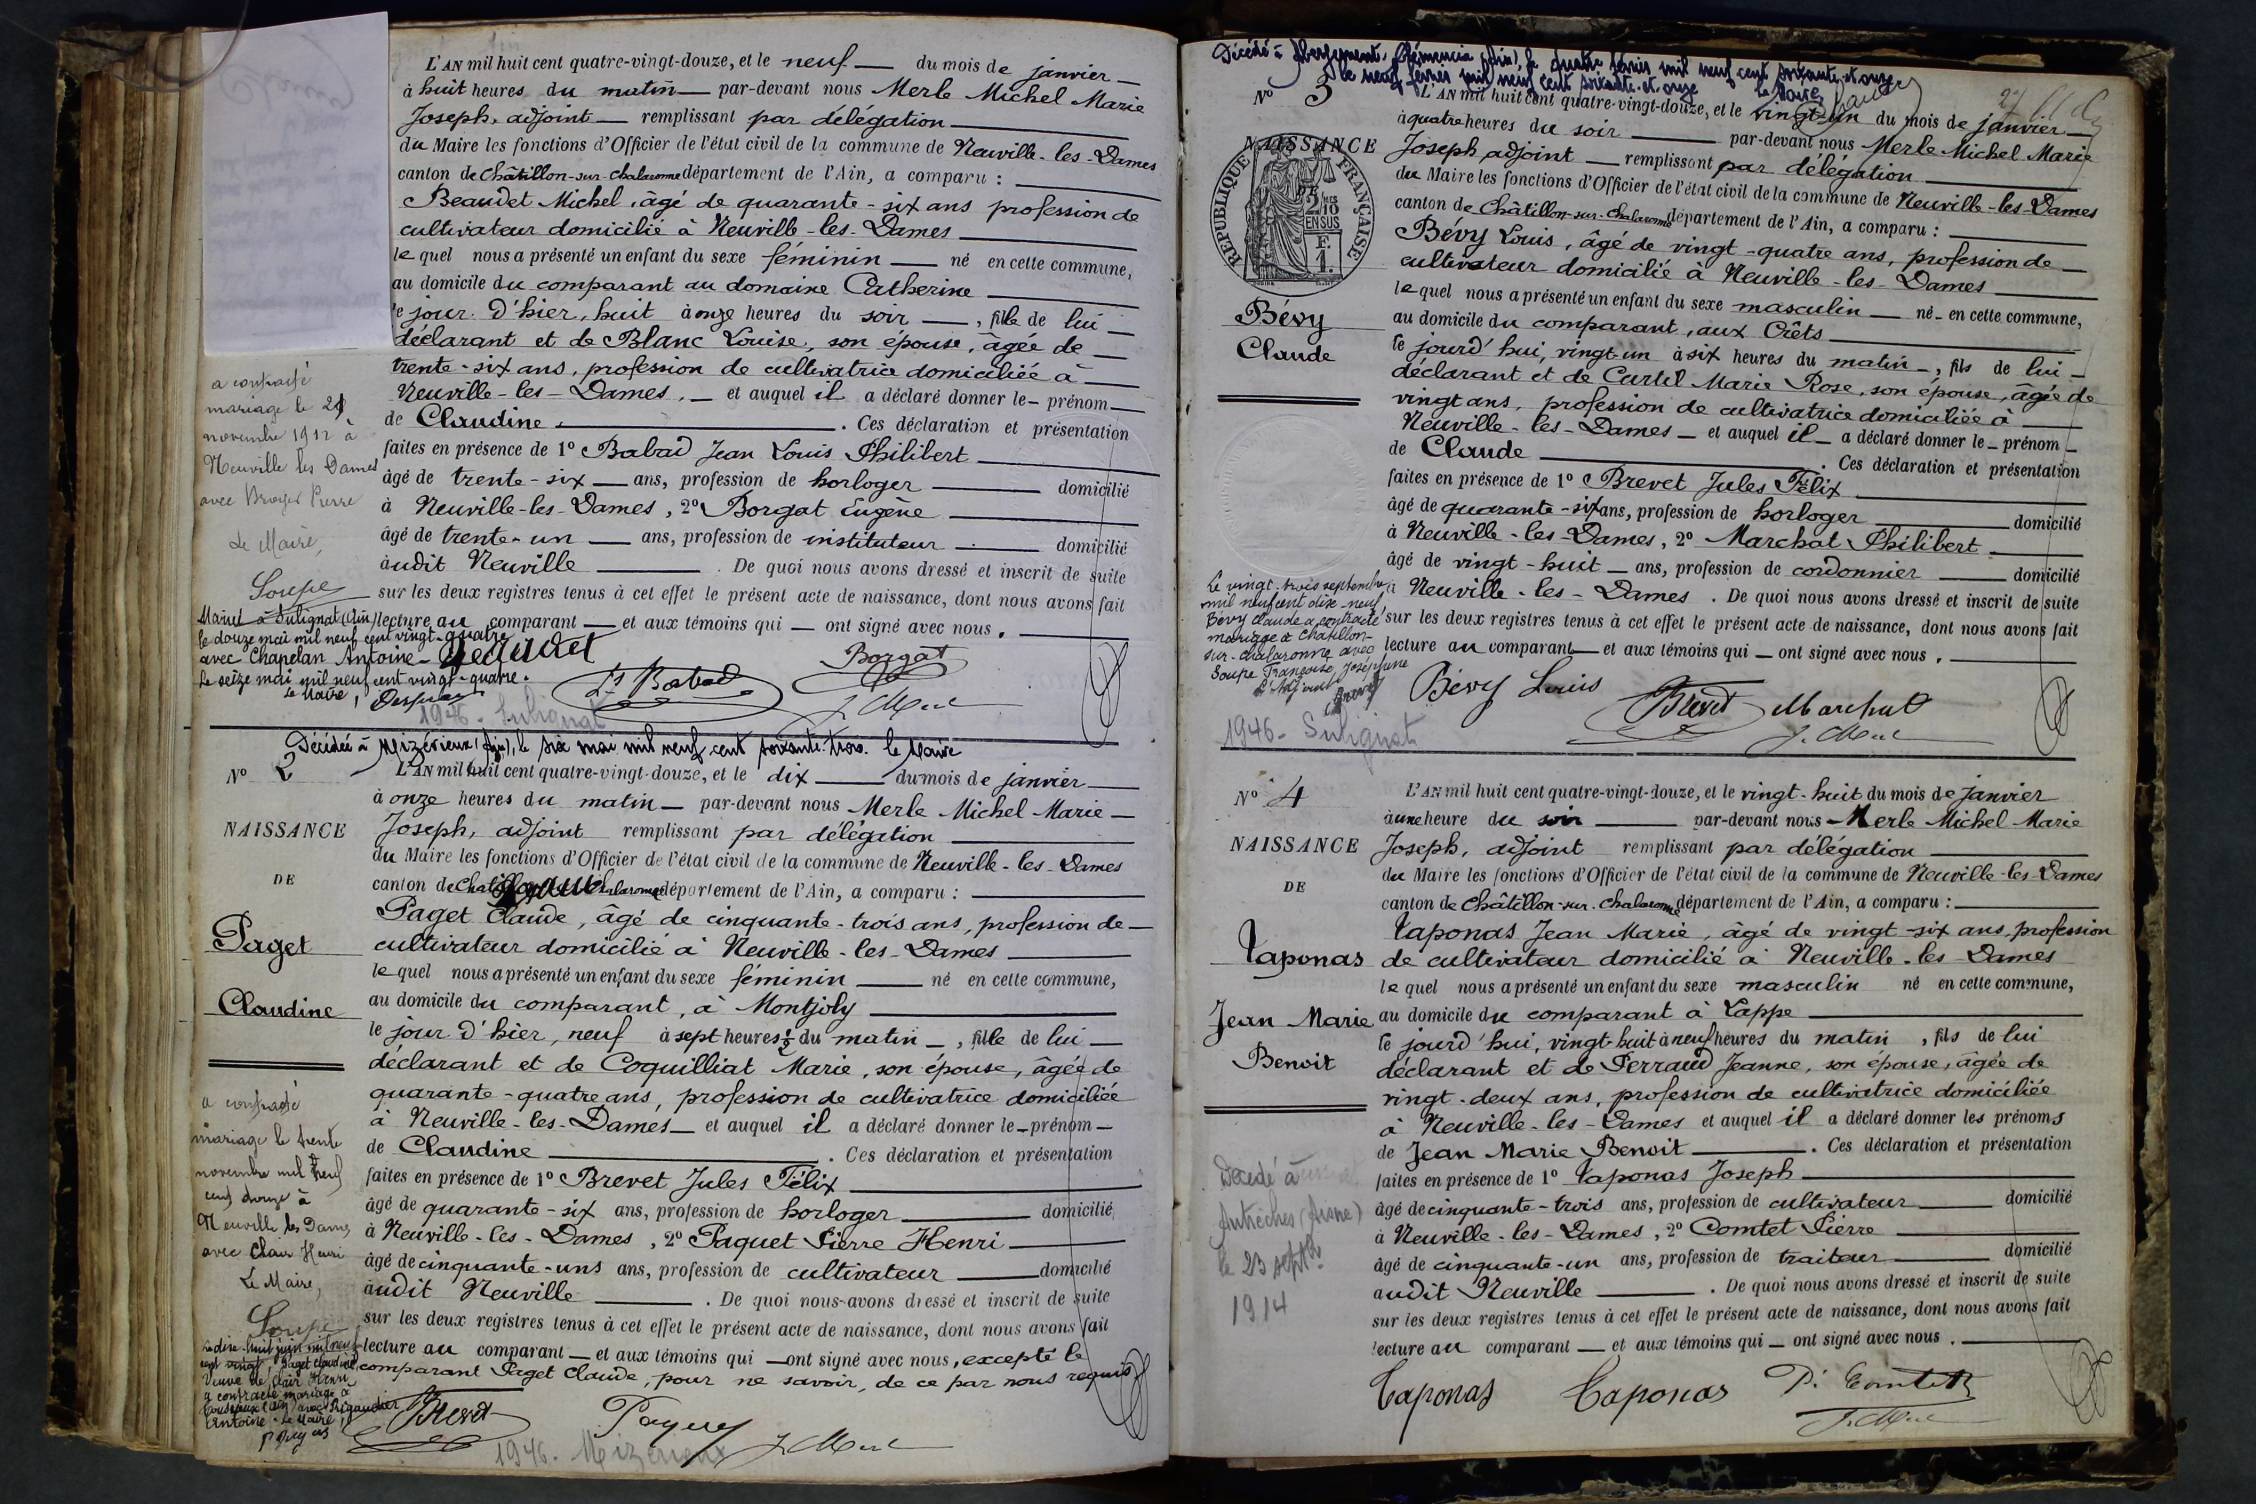 L'AN mil huit cent quatre-vingt-douze, et le neuf du mois de janvier
à huit heures du matin par-devant nous Merle Michel Marie
Joseph, adjoint remplissant par délégation
du Maire les fonctions d'Officier de l'état civil de la commune de Neuville-les-Dames
canton de Châtillon-sur-Chalaronne département de l'Ain, a comparu :
Beaudet Michel, âgé de quarante-six ans profession de
cultivateur domicilié à Neuville-les-Dames
lequel nous a présenté un enfant du sexe féminin né en cette commune,
au domicile du comparant au domaine Catherine
le jour d'hier, huit à onze heures du soir, fille de lui
déclarant et de Blanc Louise, son épouse, âgée de
trente-six ans, profession de cultivatrice domiciliée à
Neuville-les-Dames, et auquel il a déclaré donner le prénom
de Claudine. Ces déclaration et présentation
faites en présence de 1º Babad Jean Louis Philibert
âgé de trente-six ans, profession de horloger domicilié
à Neuville-les-Dames, 2º Borgat Eugène
âgé de trente-un ans, profession de instituteur domicilié
audit Neuville. De quoi nous avons dressé et inscrit de suite
sur les deux registres tenus à cet effet le présent acte de naissance, dont nous avons fait
lecture au comparant et aux témoins qui ont signé avec nous.
a contracté
mariage le
novembre 1912 à
Neuville les Dames
avec Pierre
Le Maire,
Soupe
Mariée à Sulignat (Ain)
le douze mai mil neuf cent vingt-quatre
avec Chapelan Antoine
Le seize mai mil neuf cent vingt-quatre.
Le Maire,
Beaudet
Babad
Borgat
J. Merle
1946. Sulignat
Décédée à Mizérieux (Ain), le six mai mil neuf cent soixante-trois. le Maire
Nº 2
NAISSANCE
DE
Paget
Claudine
L'AN mil huit cent quatre-vingt-douze, et le dix du mois de janvier
à onze heures du matin par-devant nous Merle Michel Marie
Joseph, adjoint remplissant par délégation
du Maire les fonctions d'Officier de l'état civil de la commune de Neuville-les-Dames
canton de Chalaronne département de l'Ain, a comparu :
Paget Claude, âgé de cinquante-trois ans, profession de
cultivateur domicilié à Neuville-les-Dames
lequel nous a présenté un enfant du sexe féminin né en cette commune,
au domicile du comparant, à Montjoly
le jour d'hier, neuf à sept heures ½ du matin, fille de lui
déclarant et de Coquilliat Marie, son épouse, âgée de
quarante-quatre ans, profession de cultivatrice domiciliée
à Neuville-les-Dames et auquel il a déclaré donner le prénom
de Claudine. Ces déclaration et présentation
faites en présence de 1º Brevet Jules Félix
âgé de quarante-six ans, profession de horloger domicilié
à Neuville-les-Dames, 2º Paquet Pierre Henri
âgé de cinquante-uns ans, profession de cultivateur domicilié
audit Neuville. De quoi nous avons dressé et inscrit de suite
sur les deux registres tenus à cet effet le présent acte de naissance, dont nous avons fait
lecture au comparant et aux témoins qui ont signé avec nous, excepté le
comparant Paget Claude, pour ne savoir, de ce par nous requis
a contracté
mariage le trente
novembre mil neuf
cent douze à
Neuville les Dames
avec Clair Henri
Le Maire,
Soupe
Le dix-huit juin mil neuf
cent vingt, Paget Claudine
Veuve de Clair Henri
a contracté mariage à
(Ain) avec Rigaudier
Antoine. Le Maire,
Brevet
Paquet
J. Merle
1946. Mizérieux
Décédé à Abergement-Clémencia (Ain), le quatre février mil neuf cent soixante-et-onze
Le neuf février mil neuf cent soixante-et-onze Le Maire,
Nº 3
27
NAISSANCE
RÉPUBLIQUE FRANÇAISE
2/10 EN SUS
F. 1.
Bévy
Claude
L'AN mil huit cent quatre-vingt-douze, et le vingt-un du mois de janvier
à quatre heures du soir par-devant nous Merle Michel Marie
Joseph, adjoint remplissant par délégation
du Maire les fonctions d'Officier de l'état civil de la commune de Neuville-les-Dames
canton de Châtillon-sur-Chalaronne département de l'Ain, a comparu :
Bévy Louis, âgé de vingt-quatre ans, profession de
cultivateur domicilié à Neuville-les-Dames
lequel nous a présenté un enfant du sexe masculin né en cette commune,
au domicile du comparant, aux Crêts
le jourd'hui, vingt-un à six heures du matin, fils de lui
déclarant et de Curtil Marie Rose, son épouse, âgée de
vingt ans, profession de cultivatrice domiciliée à
Neuville-les-Dames et auquel il a déclaré donner le prénom
de Claude. Ces déclaration et présentation
faites en présence de 1º Brevet Jules Félix
âgé de quarante-six ans, profession de horloger domicilié
à Neuville-les-Dames, 2º Marchat Philibert
âgé de vingt-huit ans, profession de cordonnier domicilié
à Neuville-les-Dames. De quoi nous avons dressé et inscrit de suite
sur les deux registres tenus à cet effet le présent acte de naissance, dont nous avons fait
lecture au comparant et aux témoins qui ont signé avec nous.
Le vingt-trois septembre
mil neuf cent dix-neuf,
Bévy Claude a contracté
mariage à Châtillon-
sur-Chalaronne avec
Soupe Françoise Joséphine
L'Adjoint
Brevet
Bévy Louis
Brevet
Marchat
J. Merle
1946. Sulignat
Nº 4
NAISSANCE
DE
Taponas
Jean Marie
Benoit
L'AN mil huit cent quatre-vingt-douze, et le vingt-huit du mois de janvier
à une heure du soir par-devant nous Merle Michel Marie
Joseph, adjoint remplissant par délégation
du Maire les fonctions d'Officier de l'état civil de la commune de Neuville-les-Dames
canton de Châtillon-sur-Chalaronne département de l'Ain, a comparu :
Taponas Jean Marie, âgé de vingt-six ans, profession
de cultivateur domicilié à Neuville-les-Dames
lequel nous a présenté un enfant du sexe masculin né en cette commune,
au domicile du comparant à Lappe
le jourd'hui, vingt-huit à neuf heures du matin, fils de lui
déclarant et de Perraud Jeanne, son épouse, âgée de
vingt-deux ans, profession de cultivatrice domiciliée
à Neuville-les-Dames et auquel il a déclaré donner les prénoms
de Jean Marie Benoit. Ces déclaration et présentation
faites en présence de 1º Taponas Joseph
âgé de cinquante-trois ans, profession de cultivateur domicilié
à Neuville-les-Dames, 2º Comtet Pierre
âgé de cinquante-un ans, profession de traiteur domicilié
audit Neuville. De quoi nous avons dressé et inscrit de suite
sur les deux registres tenus à cet effet le présent acte de naissance, dont nous avons fait
lecture au comparant et aux témoins qui ont signé avec nous.
Décédé à
Autrèches (Aisne)
le 23 septbre
1914
Taponas
Taponas
P. Comtet
J. Merle